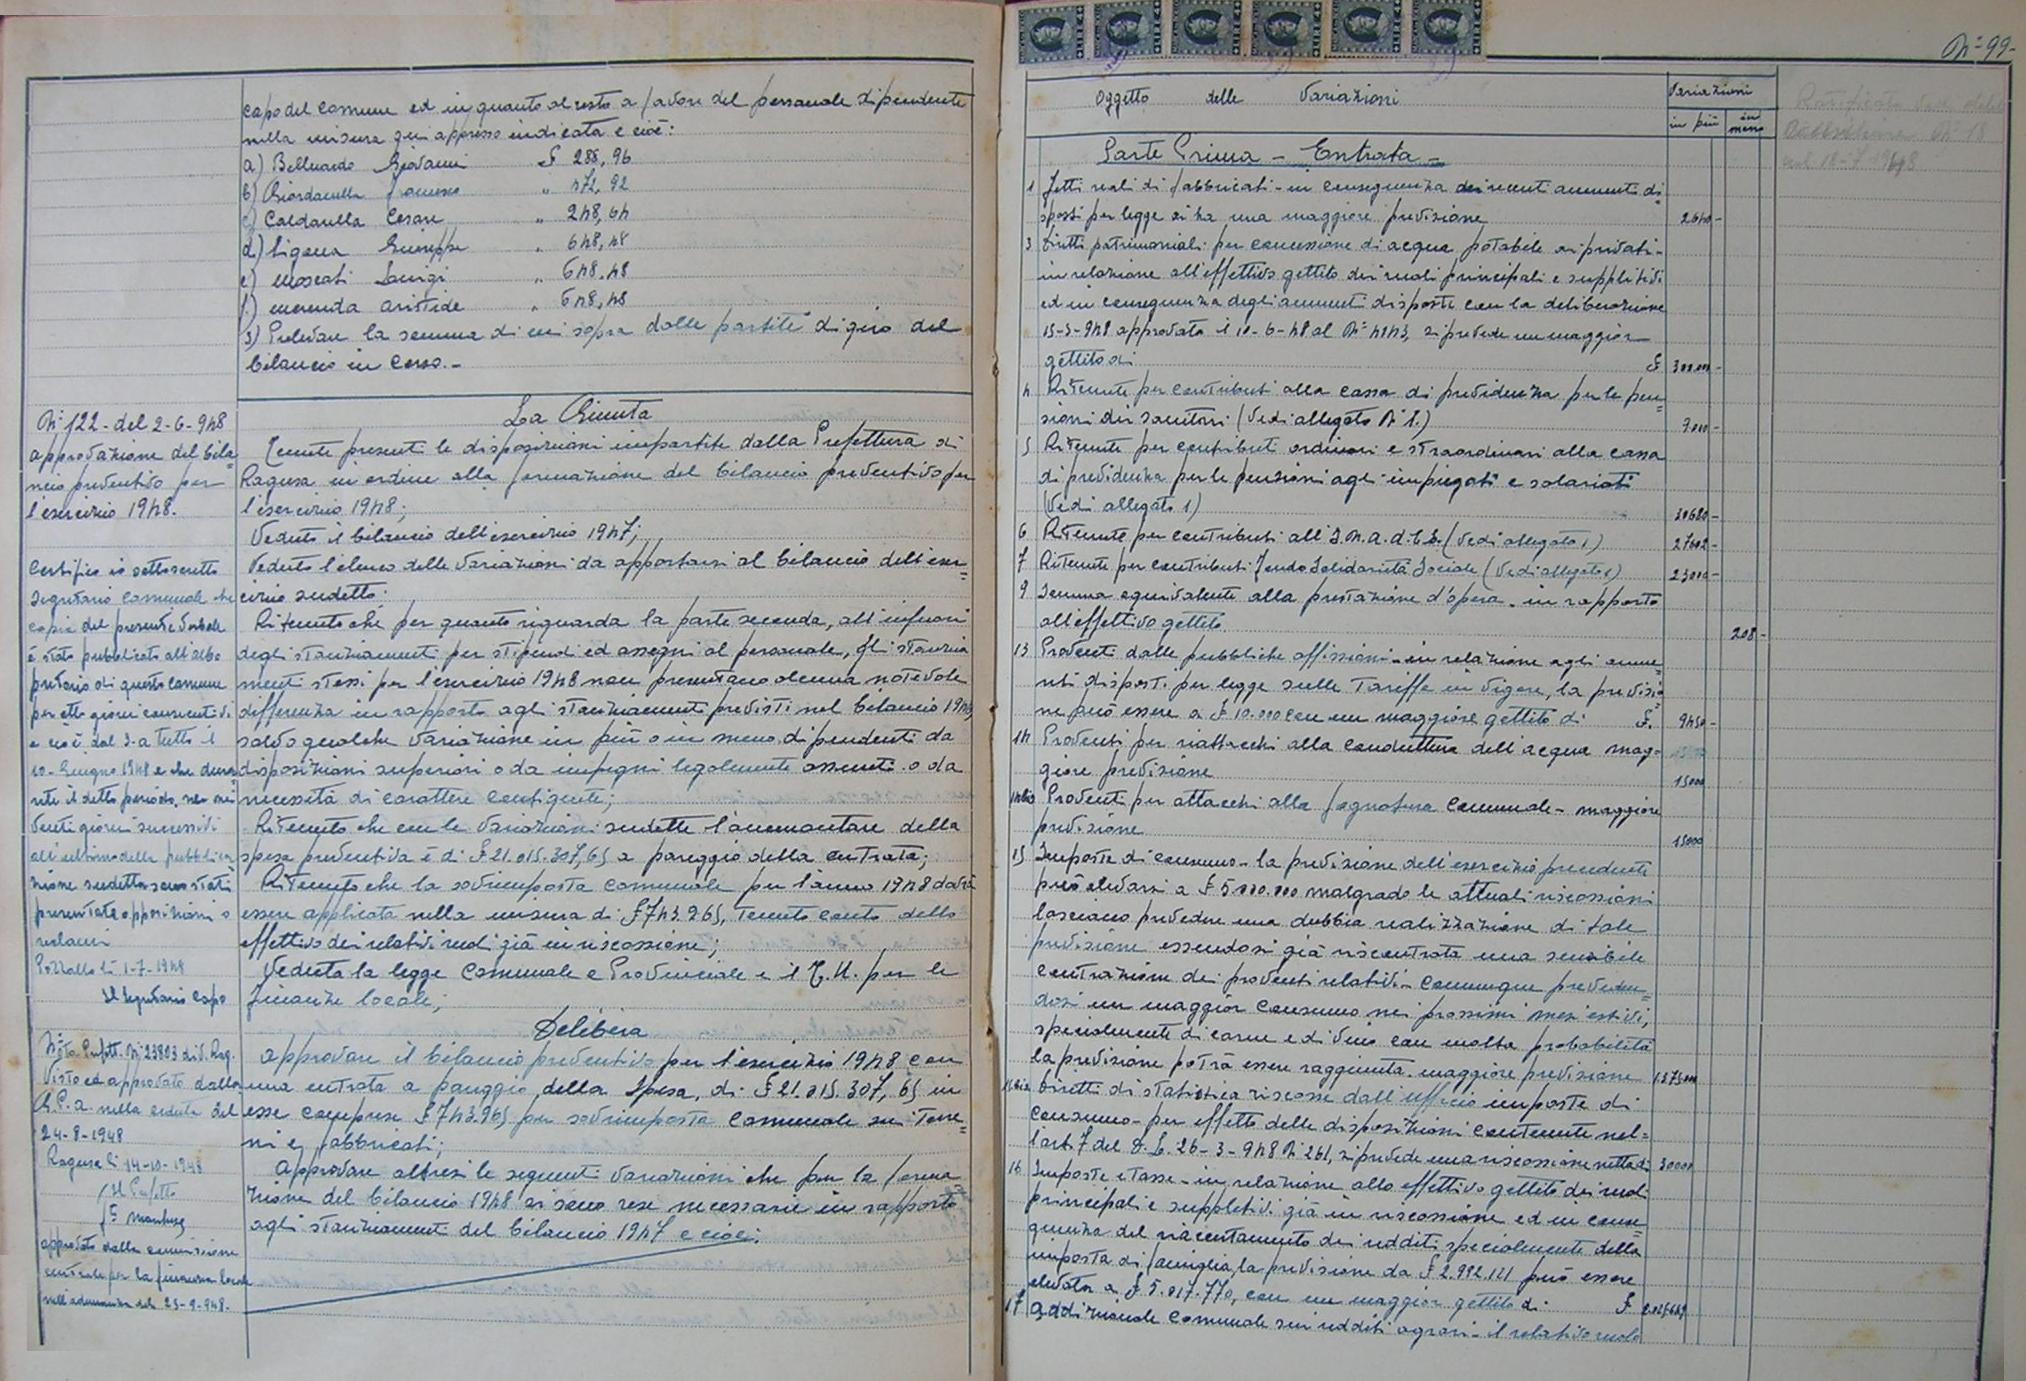 capo del comune ed in quanto al resto a favore del personale dipendente
nella misura qui appresso indicata e cioè:
a) Belluardo Giovanni £ 288,96
b) Giordanella „ 472,92
c) Caldarella Cesare „ 248,64
d) Ligama Giuseppe „ 648,48
e) Moscati Luigi „ 648,48
f) Merenda Aristide „ 648,48
3) Prelevare la somma di cui sopra dalle partite di giro del
bilancio in corso.-
N° 122 - del 2-6-948
approvazione del bila=
ncio preventivo per
l'esercizio 1948.
Certifico io sottoscritto
Segretario comunale che
copia del presente verbale
è stato pubblicato all'albo
pretorio di questo comune
per otto giorni consecutivi
e cioè dal 3 a tutto il
10 - Giugno 1948 e che duran
te il detto periodo, nei
venti giorni successivi
all'ultimo della pubblica
zione suddetta sono stati
presentate opposizioni o
reclami
Pozzallo lì 1-7-1948
Il Segretario Capo
Nota Prefett. N° 23803 div. Rag.
Visto ed approvato dalla
G.P.A. nella seduta del
24-8-1948
Ragusa lì 14-10-1948
Il Prefetto
approvato dalla commissione
centrale per la finanza locale
nell'adunanza del 25-9-948.
La Giunta
Tenute presenti le disposizioni impartite dalla Prefettura di
Ragusa in ordine alla formazione del bilancio preventivo per
l'esercizio 1948;
Veduto il bilancio dell'esercizio 1947;
Veduto l'elenco delle variazioni da apportarsi al bilancio dell'eser=
cizio sudetto;
Ritenuto che per quanto riguarda la parte seconda, all'infuori
degli stanziamenti per stipendi ed assegni al personale, gli stanzia
menti stessi per l'esercizio 1948 non presentano alcuna notevole
differenza in rapporto agli stanziamenti previsti nel bilancio 1947,
salvo qualche variazione in più o in meno dipendenti da
disposizioni superiori o da impegni legalmente assunti o da
necessità di carattere contigente;
Ritenuto che con le variazioni sudette l'ammontare della
spesa preventiva è di £ 21.015.307,65 a pareggio della entrata;
Ritenuto che la sovrimposta comunale per l'anno 1948 dovrà
essere applicata nella misura di £ 743.965, tenuto conto dello
effettivo dei relativi ruoli già in riscossione;
Veduta la legge Comunale e Provinciale e il T.U. per la
finanza locale;
Delibera
Approvare il bilancio preventivo per l'esercizio 1948 con
una entrata a pareggio della spesa, di £ 21.015.307,65 in
esse comprese £ 743.965 per sovrimposta comunale su terre=
ni e fabbricati;
Approvare altresì le seguenti variazioni che per la forma
zione del bilancio 1948 si sono rese necessarie in rapporto
agli stanziamenti del bilancio 1947 e cioè:
N° 99-
Oggetto delle Variazioni
Variazioni
in più in meno
Ratificata
N° 18
18-7-1948
Parte Prima - Entrata -
1 Fitti reali di fabbricati - in conseguenza dei recenti aumenti di=
sposti per legge si ha una maggiore previsione 2640 -
3 Diritti patrimoniali per concessione di acqua potabile ai privati -
in relazione all'effettivo gettito dei ruoli principali e suppletivi
ed in conseguenza degli aumenti disposti con la deliberazione
15-3-948 approvata il 10-6-48 al N° 4143, si prevede un maggior
gettito di £ 300.000 -
4 Ritenute per contributi alla cassa di previdenza per le pen=
sioni dei sanitari (Vedi allegato N° 1.) 7.000 -
5 Ritenute per contributi ordinari e straordinari alla cassa
di previdenza per le pensioni agli impiegati e salariati
(Vedi allegato 1) 30680 -
6 Ritenute per contributi all'I.N.A.D.E.L. (Vedi allegato 1.) 27602 -
7 Ritenute per contributi Fondo Solidarietà Sociale (Vedi allegato 1) 23000 -
9 Somma equivalente alla prestazione d'opera - in rapporto
all'effettivo gettito 208 -
13 Proventi dalle pubbliche affissioni - in relazione agli aume
nti disposti per legge sulle tariffe in vigore, la previsio
ne può essere a £ 10.000 con un maggiore gettito di £. 9450 -
14 Proventi per riattacchi alla conduttura dell'acqua mag-
giore previsione 15000
14 bis Proventi per attacchi alla fognatura comunale - maggiore
previsione 15000
15 Imposte di consumo - la previsione dell'esercizio precedente
può elevarsi a £ 5.000.000 malgrado le attuali riscossioni
lasciano prevedere una dubbia realizzazione di tale
previsione essendosi già riscontrata una sensibile
contrazione dei proventi relativi - comunque preveden=
dosi un maggior consumo nei prossimi mesi estivi,
specialmente di carne e di vino con molta probabilità
la previsione potrà essere raggiunta. maggiore previsione 1.275.000
15 bis Diritti di statistica riscosse dall'ufficio imposte di
consumo - per effetto delle disposizioni contenute nel=
l'art. 7 del D.L. 26-3-948 N. 261, si prevede una riscossione netta di 30000
16 Imposte e tasse - in relazione allo effettivo gettito dei ruoli
principali e suppletivi già in riscossione ed in conse
guenza del riaccertamento dei redditi specialmente della
imposta di famiglia, la previsione da £ 2.992.121 può essere
elevata a £ 5.017.770, con un maggior gettito di £ 2.025.649
17 Addizionale comunale sui redditi agrari - il relativo ruolo